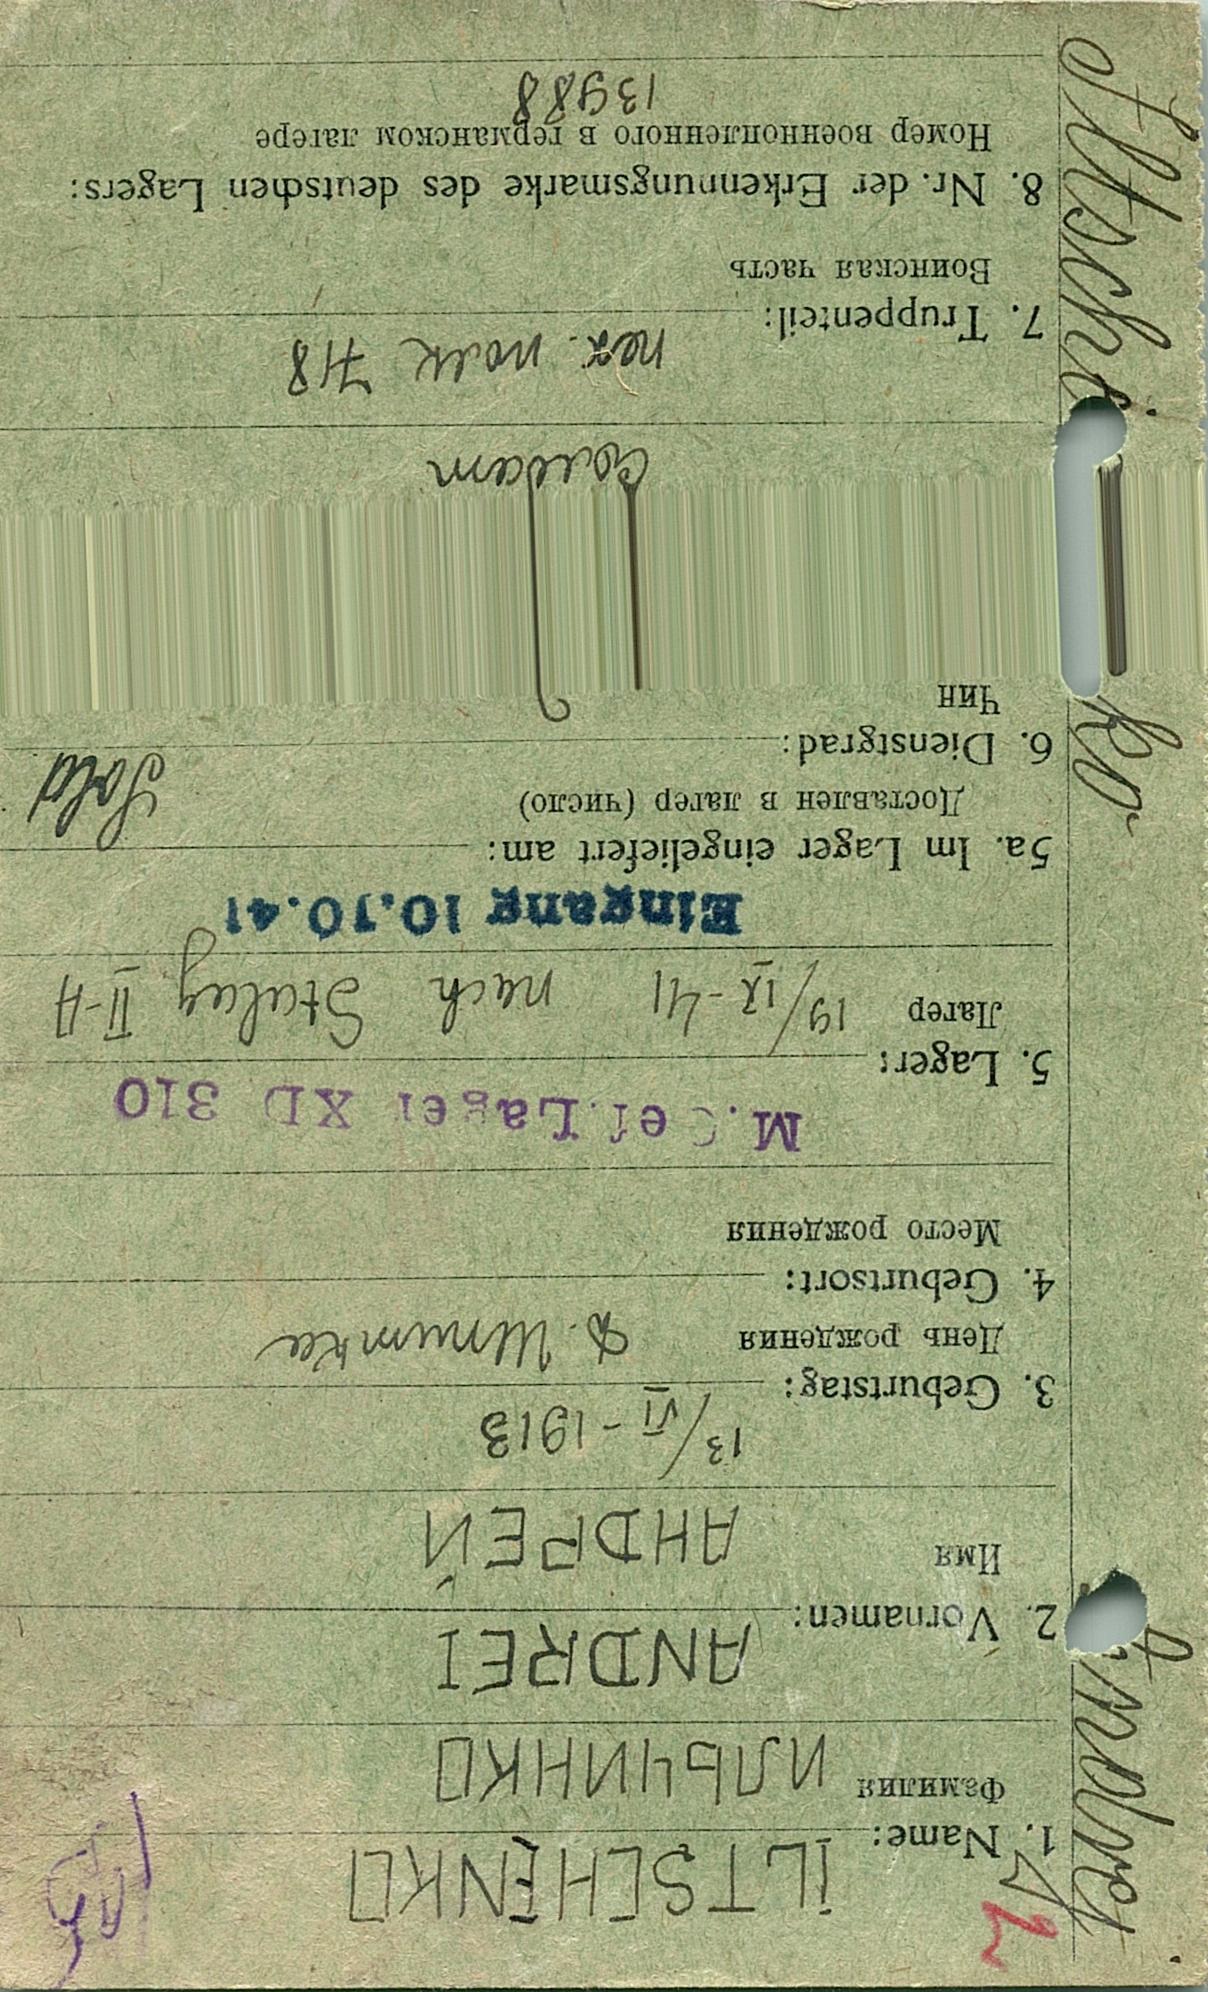 2
1. Name: ILTSCHENKO
Фамилия ИЛЬЧИНКО
2. Vornamen: ANDREI
Имя АНДРЕЙ
3. Geburtstag: 13/VI - 1913
День рождения
4. Geburtsort:
Место рождения
M. Gef. Lager XD 310
5. Lager:
Лагер 19/IX-41 nach Stalag II-A
Eingang 10.10.41
5a. Im Lager eingeliefert am:
Доставлен в лагер (число)
6. Dienstgrad: Sold
Чин
Солдат
7. Truppenteil: пех. полк 718
Воинская часть
8. Nr. der Erkennungsmarke des deutschen Lagers:
Номер военнопленного в германском лагере
13988
Iltsche ko
Andrej